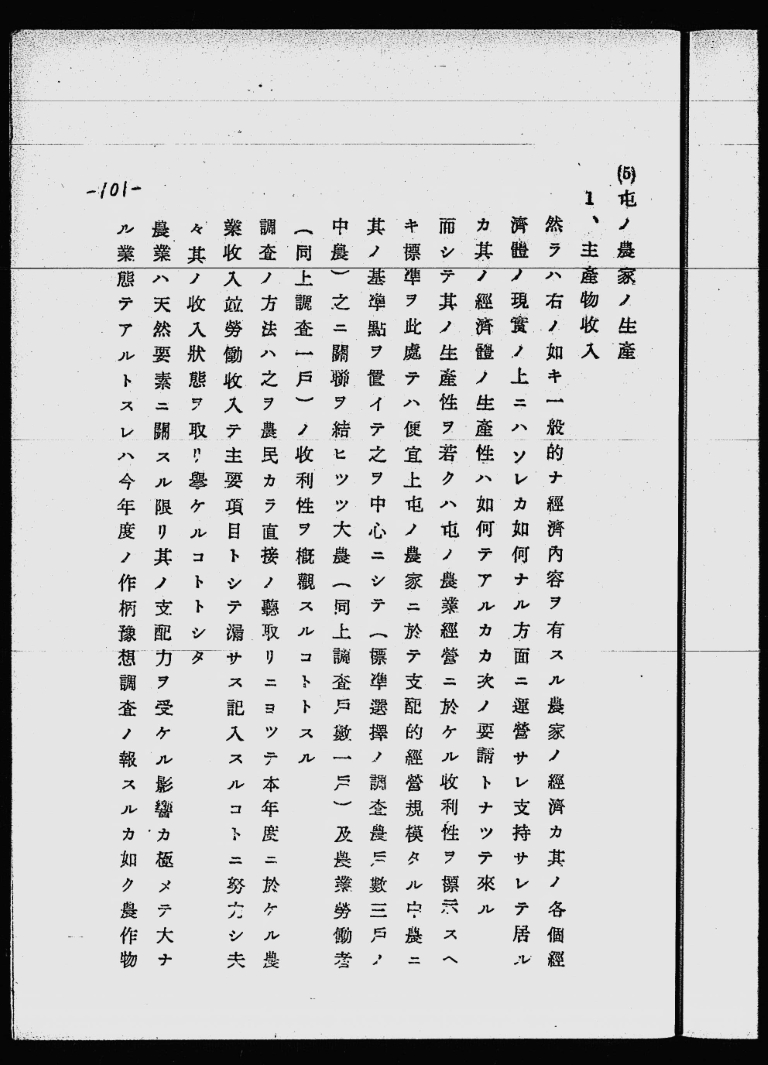 (5)屯ノ農家ノ生產
1、主產物收入
然ラハ右ノ如キ一般的ナ經濟內容ヲ有スル農家ノ經濟カ其ノ各個經
濟體ノ現實ノ上ニハソレカ如何ナル方面ニ運營サレ支持サレテ居ル
カ其ノ經濟體ノ生產性ハ如何テアルカカ次ノ要請トナツテ來ル
而シテ其ノ生產性ヲ若クハ屯ノ農業經營ニ於ケル收利性ヲ標示スヘ
キ標準ヲ此處テハ便宜上屯ノ農家ニ於テ支配的經營規模タル中農ニ
其ノ基準點ヲ置イテ之ヲ中心ニシテ(標準選擇ノ調査農戶數三戶ノ
中農)之ニ關聯ヲ結ヒツツ大農(同上調査戶數一戶)及農業勞働者
(同上調査一戶)ノ收利性ヲ槪觀スルコトトスル
調査ノ方法ハ之ヲ農民カラ直接ノ聽取リニヨツテ本年度ニ於ケル農
業收入竝勞働收入テ主要項目トシテ漏サス記入スルコトニ努力シ夫
々其ノ收入狀態ヲ取リ擧ケルコトトシタ
農業ハ天然要素ニ關スル限リ其ノ支配力ヲ受ケル影響カ極メテ大ナ
ル業態テアルトスレハ今年度ノ作柄豫想調査ノ報スルカ如ク農作物
-101-